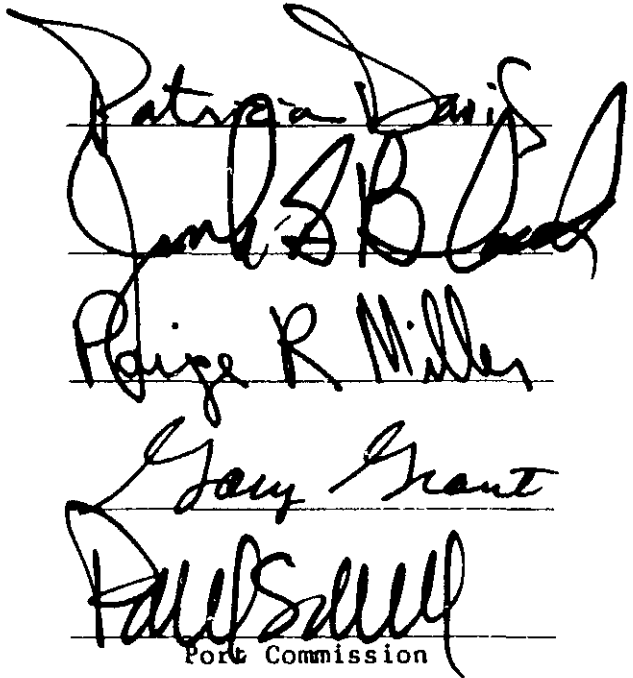 Patricia Davis
Jack Block
Paige R Miller
Gary Grant
Paul Schell
Port Commission